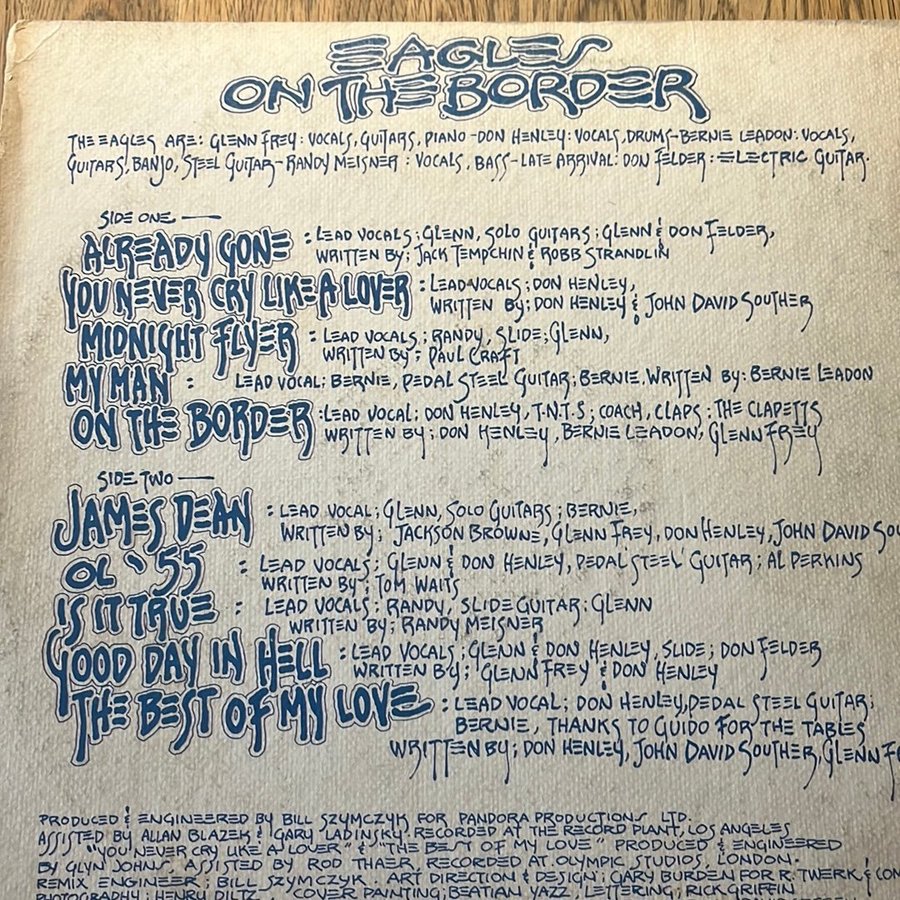 EAGLES
ON THE BORDER
THE EAGLES ARE: GLENN FREY: VOCALS, GUITARS, PIANO - DON HENLEY: VOCALS, DRUMS - BERNIE LEADON: VOCALS,
GUITARS, BANJO, STEEL GUITAR - RANDY MEISNER: VOCALS, BASS - LATE ARRIVAL: DON FELDER: ELECTRIC GUITAR.
SIDE ONE —
ALREADY GONE : LEAD VOCALS; GLENN, SOLO GUITARS; GLENN & DON FELDER,
WRITTEN BY; JACK TEMPCHIN & ROBB STRANDLIN
YOU NEVER CRY LIKE A LOVER : LEAD VOCALS; DON HENLEY,
WRITTEN BY; DON HENLEY & JOHN DAVID SOUTHER
MIDNIGHT FLYER : LEAD VOCALS; RANDY, SLIDE; GLENN,
WRITTEN BY; PAUL CRAFT
MY MAN : LEAD VOCAL; BERNIE, PEDAL STEEL GUITAR; BERNIE, WRITTEN BY: BERNIE LEADON
ON THE BORDER : LEAD VOCAL; DON HENLEY, T.N.T.S; COACH, CLAPS; THE CLAPETTS
WRITTEN BY; DON HENLEY, BERNIE LEADON, GLENN FREY
SIDE TWO —
JAMES DEAN : LEAD VOCAL; GLENN, SOLO GUITARS; BERNIE,
WRITTEN BY; JACKSON BROWNE, GLENN FREY, DON HENLEY, JOHN DAVID SOU
OL '55 : LEAD VOCALS; GLENN & DON HENLEY, PEDAL STEEL GUITAR; AL PERKINS
WRITTEN BY; TOM WAITS
IS IT TRUE : LEAD VOCALS; RANDY, SLIDE GUITAR; GLENN
WRITTEN BY; RANDY MEISNER
GOOD DAY IN HELL : LEAD VOCALS; GLENN & DON HENLEY, SLIDE; DON FELDER
WRITTEN BY; GLENN FREY & DON HENLEY
THE BEST OF MY LOVE : LEAD VOCAL; DON HENLEY, PEDAL STEEL GUITAR;
BERNIE, THANKS TO GUIDO FOR THE TABLES
WRITTEN BY; DON HENLEY, JOHN DAVID SOUTHER, GLENN F
PRODUCED & ENGINEERED BY BILL SZYMCZYK FOR PANDORA PRODUCTIONS LTD.
ASSISTED BY ALLAN BLAZEK & GARY LADINSKY. RECORDED AT THE RECORD PLANT, LOS ANGELES
"YOU NEVER CRY LIKE A LOVER" & "THE BEST OF MY LOVE" PRODUCED & ENGINEERED
BY GLYN JOHNS, ASSISTED BY ROD THAER, RECORDED AT OLYMPIC STUDIOS, LONDON.
REMIX ENGINEER; BILL SZYMCZYK. ART DIRECTION & DESIGN; GARY BURDEN FOR R. TWERK & CON
PHOTOGRAPHY; HENRY DILTZ. COVER PAINTING; BEATIAN YAZZ, LETTERING; RICK GRIFFIN